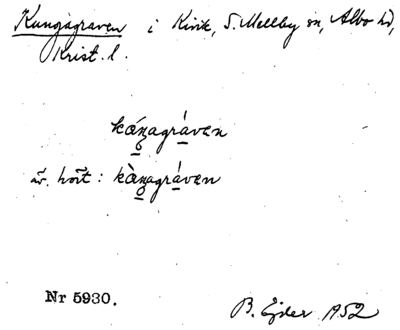 Kungagraven i Kivik, S. Mellby sn, Albo hd,
Krist. l.
káŋagráven
äv. hört: kàŋagráven
Nr 5930.
B. Ejder 1952